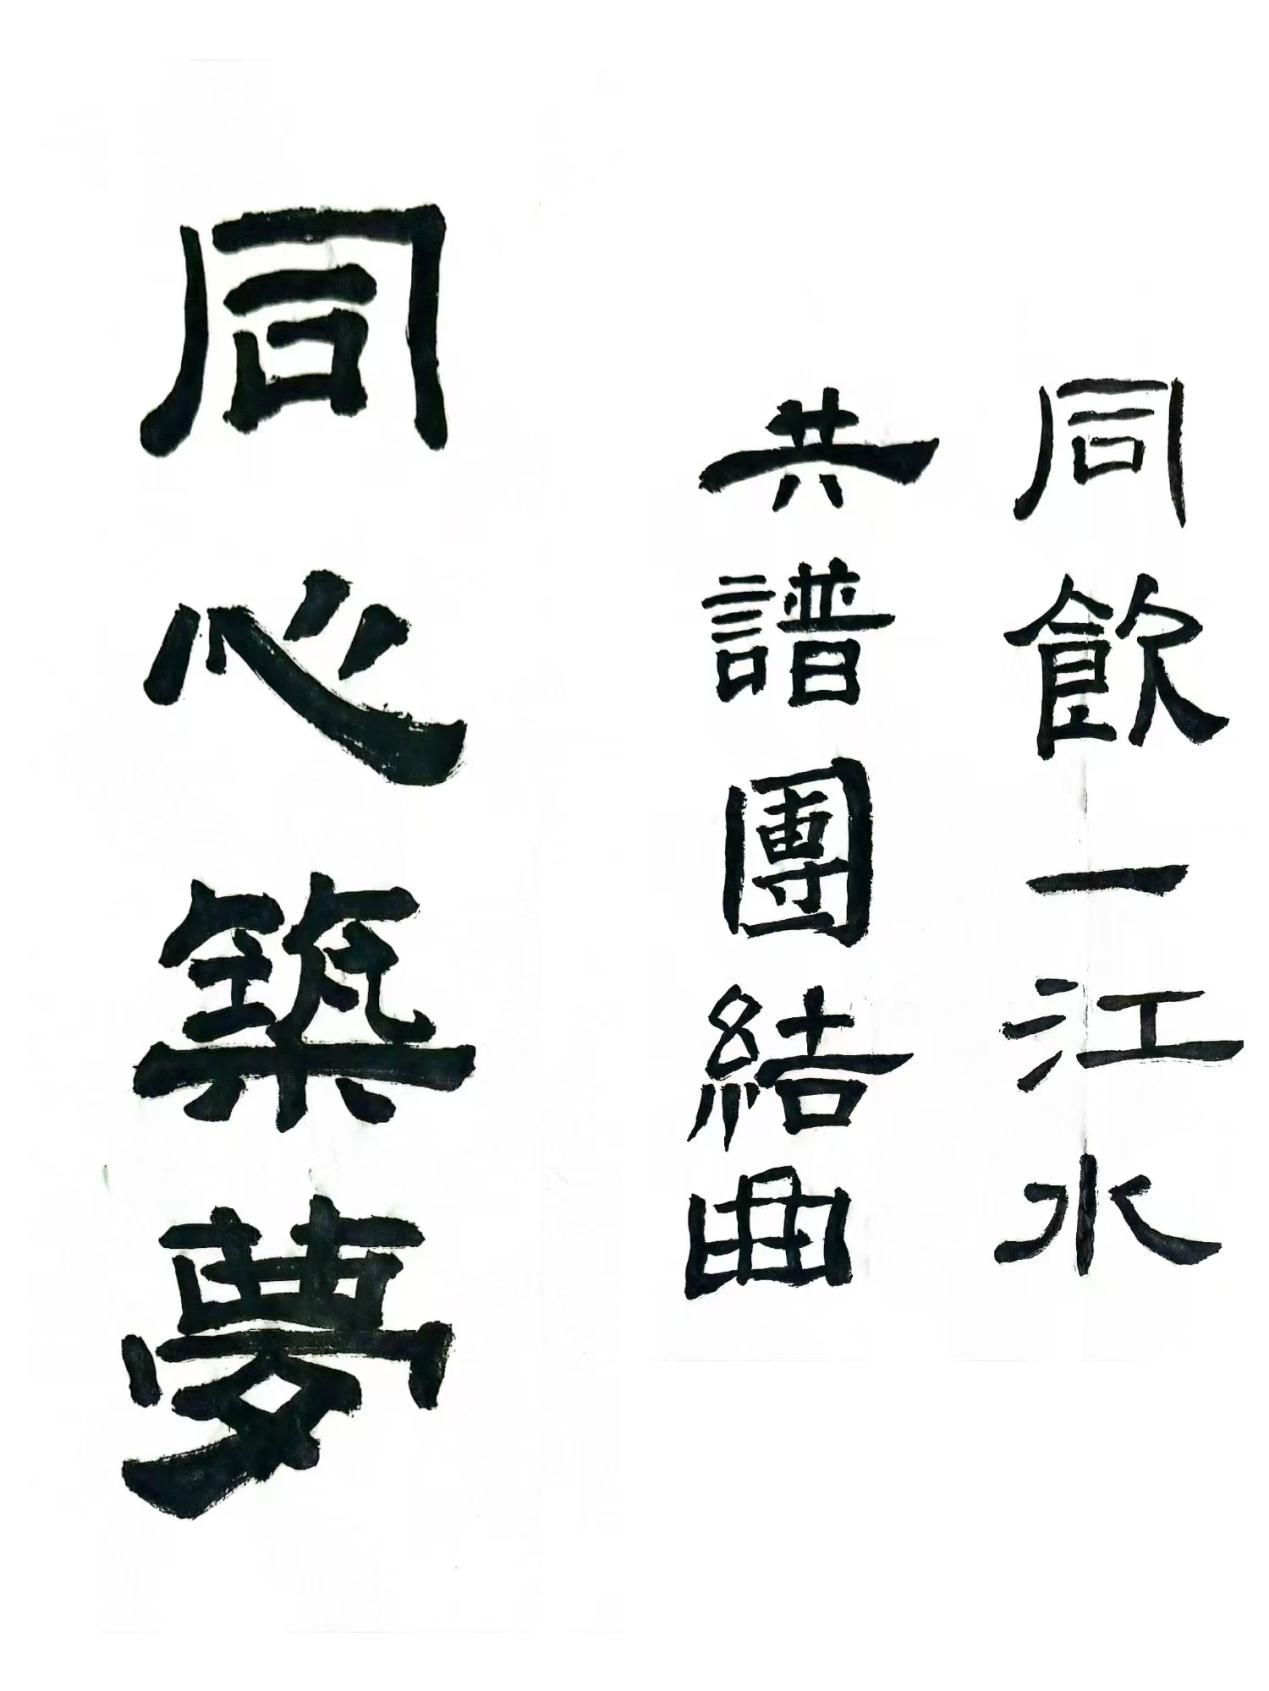 同飲一江水
共譜團結曲
同心築夢